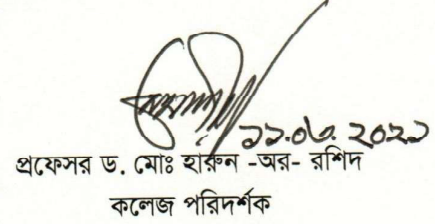 ১১.০৬.২০২১
প্রফেসর ড. মোঃ হারুন -অর- রশিদ
কলেজ পরিদর্শক